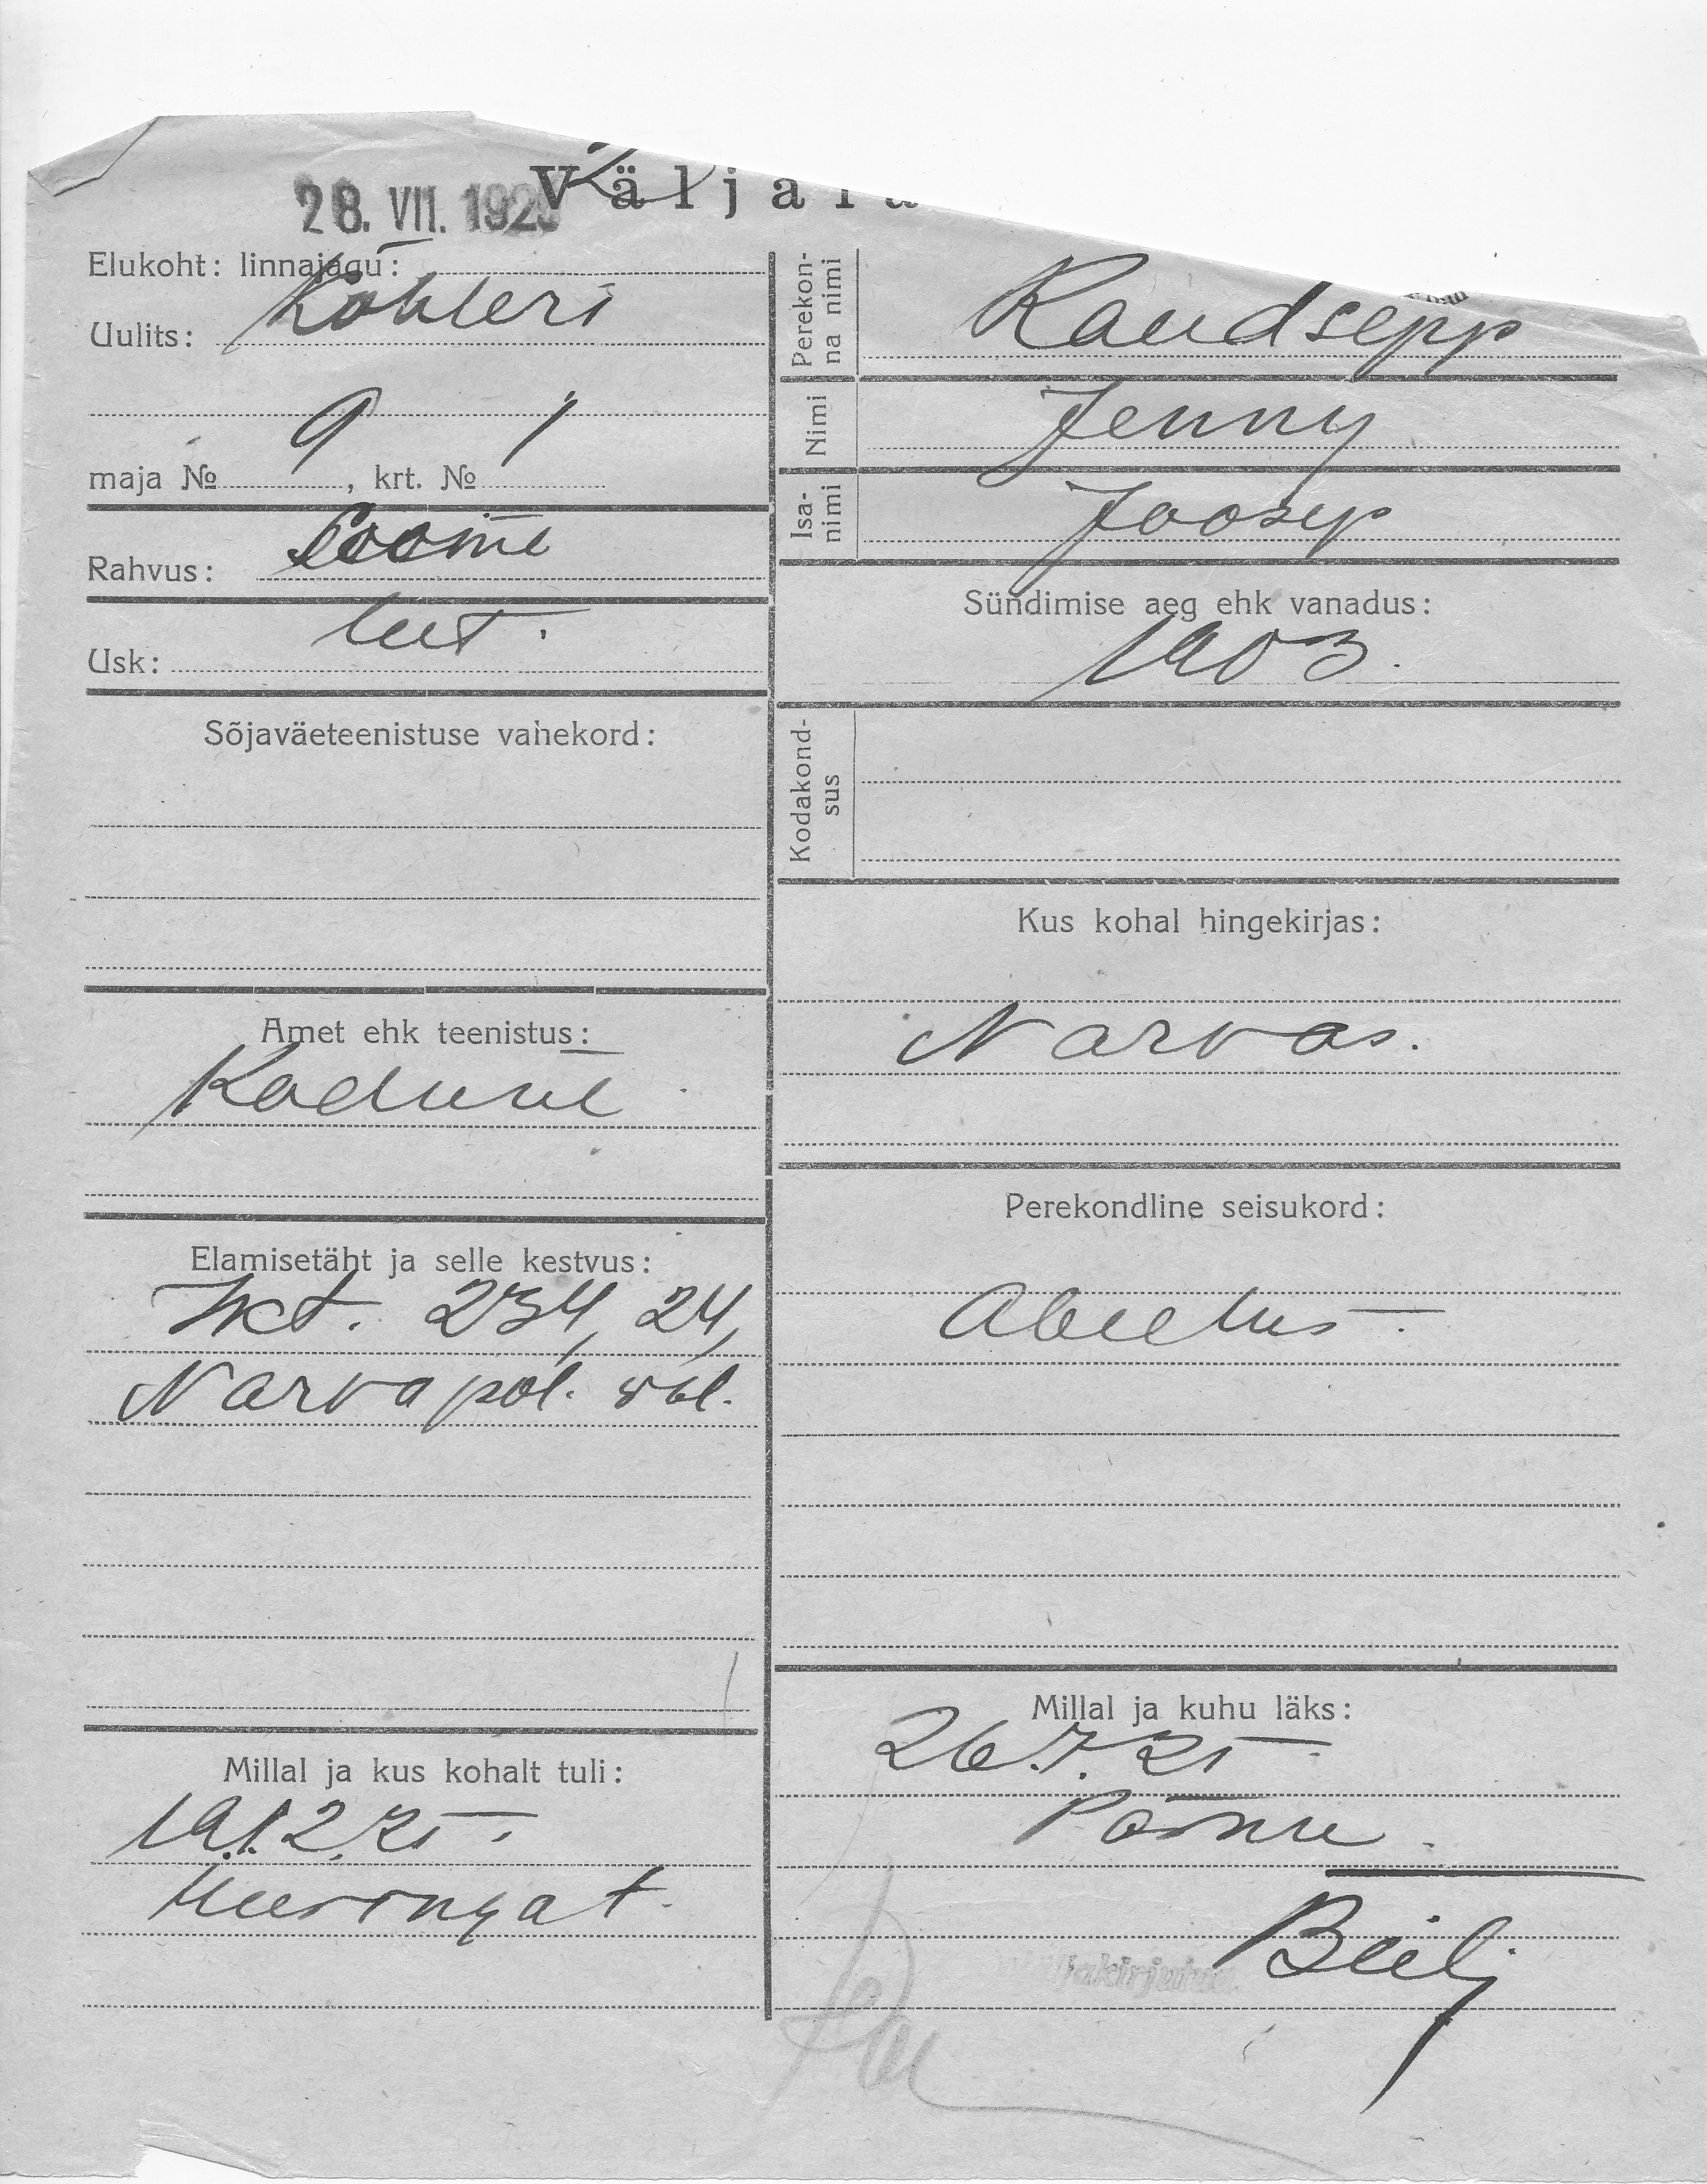 28. VII. 1925
Elukoht: linnajagu:
Uulits: Köhleri
maja № 9, krt. № 1
Rahvus: Soome
Usk: lut.
Sõjaväeteenistuse vahekord:
Amet ehk teenistus:
Kodune
Elamisetäht ja selle kestvus:
Ikt. 234, 24,
Narva pol.
Millal ja kus kohalt tuli:
19.12.25.
Perekonna nimi Raudsepp
Nimi Jenny
Isanimi Joosep
Sündimise aeg ehk vanadus:
1903.
Kodakondsus
Kus kohal hingekirjas:
Narvas.
Perekondline seisukord:
Abielus.
Millal ja kuhu läks:
26.7.25.
Pärnu.